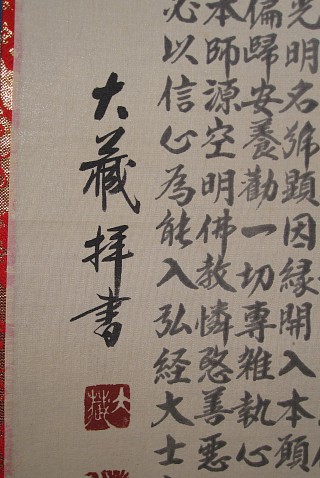 光明名號顕因縁開入本願
偏歸安養勧一切專雜執心
本師源空明佛教憐愍善惡
必以信心為能入弘経大士
大蔵拝書
大蔵